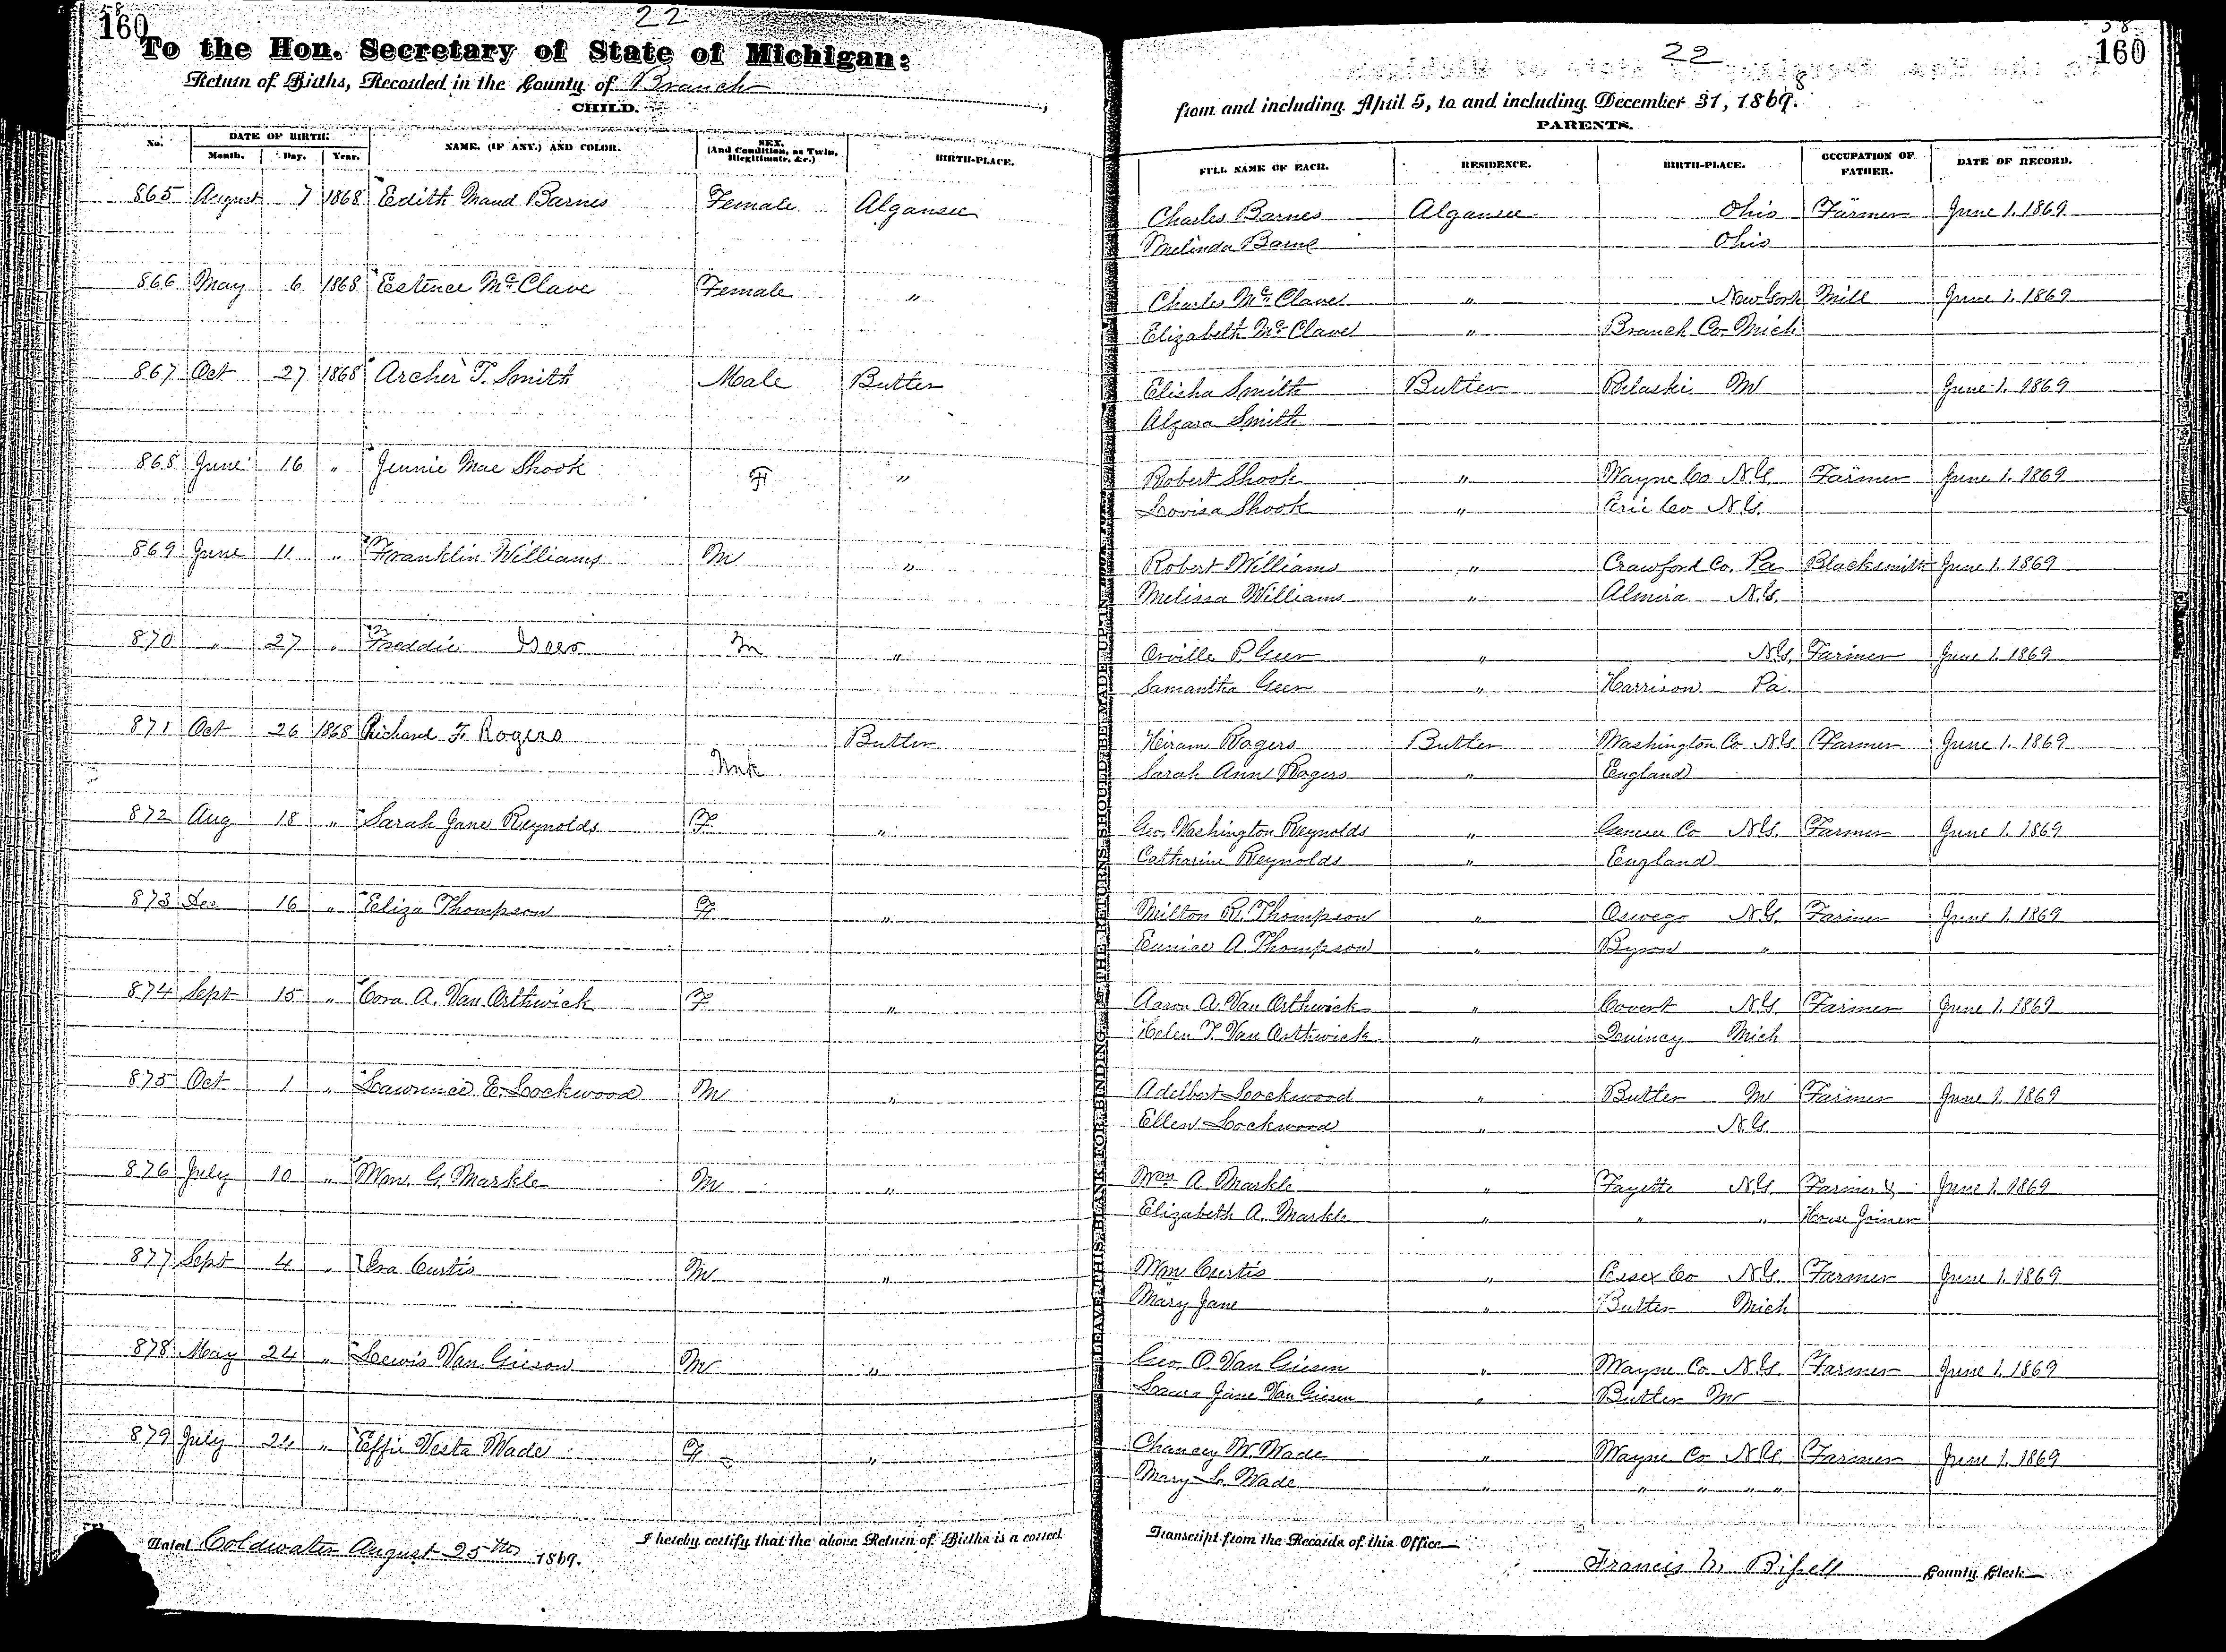 58
160
22
To the Hon. Secretary of State of Michigan:
Return of Births, Recorded in the County of Branch
CHILD.
No. DATE OF BIRTH. NAME, (IF ANY,) AND COLOR. SEX, (And Condition, as Twin, Illegitimate, &c.) BIRTH-PLACE.
Month. Day. Year.
865 August 7 1868 Edith Maud Barnes Female Algansee
866 May 6 1868 Estence McClave Female "
867 Oct 27 1868 Archer T. Smith Male Butler
868 June 16 " Jennie Mae Shook F "
869 June 11 " Franklin Williams M "
870 " 27 " Freddie Geer M "
871 Oct 26 1868 Richard F. Rogers Butler
Unk
872 Aug 18 " Sarah Jane Reynolds F "
873 Dec 16 " Eliza Thompson F "
874 Sept 15 " Cora A. Van Orthwick F "
875 Oct 1 " Lawrence E. Lockwood M "
876 July 10 " Wm. G. Markle M "
877 Sept 4 " Ira Curtis M "
878 May 24 " Lewis Van Gieson M "
879 July 24 " Effie Vesta Wade F "
Dated Coldwater August 25th 1869. I hereby certify that the above Return of Births is a correct
LEAVE THIS BLANK FOR BINDING. THE RETURNS SHOULD BE MADE UP IN BOOK FORM.
58
160
22
from and including April 5, to and including December 31, 1869.
8
PARENTS.
FULL NAME OF EACH. RESIDENCE. BIRTH-PLACE. OCCUPATION OF FATHER. DATE OF RECORD.
Charles Barnes Algansee Ohio Farmer June 1. 1869
Melinda Barne Ohio
Charles McClave " New York Mill June 1. 1869
Elizabeth McClave " Branch Co. Mich
Elisha Smith Butler Pulaski M June 1. 1869
Alzara Smith
Robert Shook " Wayne Co N.Y. Farmer June 1. 1869
Lovisa Shook " Erie Co N.Y.
Robert Williams " Crawford Co. Pa Blacksmith June 1. 1869
Melissa Williams " Almira N.Y.
Orville P. Geer " N.Y. Farmer June 1. 1869
Samantha Geer " Harrison Pa.
Hiram Rogers Butler Washington Co N.Y. Farmer June 1. 1869
Sarah Ann Rogers " England
Geo. Washington Reynolds " Genesee Co N.Y. Farmer June 1. 1869
Catharine Reynolds " England
Milton R. Thompson " Oswego N.Y. Farmer June 1. 1869
Eunice A. Thompson " Byron "
Aaron A. Van Orthwick " Covert N.Y. Farmer June 1. 1869
Helen T. Van Orthwick " Quincy Mich
Adelbert Lockwood " Butler M Farmer June 1. 1869
Ellen Lockwood " N.Y.
Wm A Markle " Fayette N.Y. Farmer & June 1. 1869
Elizabeth A. Markle " " " House Joiner
Wm Curtis " Essex Co N.Y. Farmer June 1. 1869
Mary Jane " Butler Mich
Geo. O. Van Giesen " Wayne Co N.Y. Farmer June 1. 1869
Laura Jane Van Giesen " Butler M
Chancey W. Wade " Wayne Co N.Y. Farmer June 1. 1869
Mary L. Wade " " " " "
Transcript from the Records of this Office
Francis M Bissell County Clerk